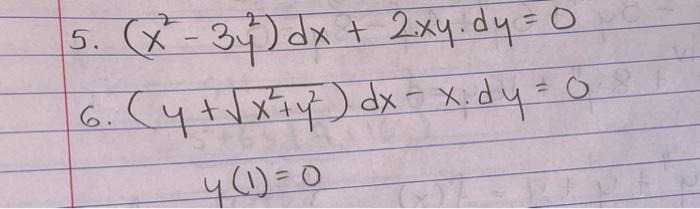 5. (x² - 3y²) dx + 2.xy.dy = 0
6. (y + √x²+y²) dx - x.dy = 0
y(1) = 0